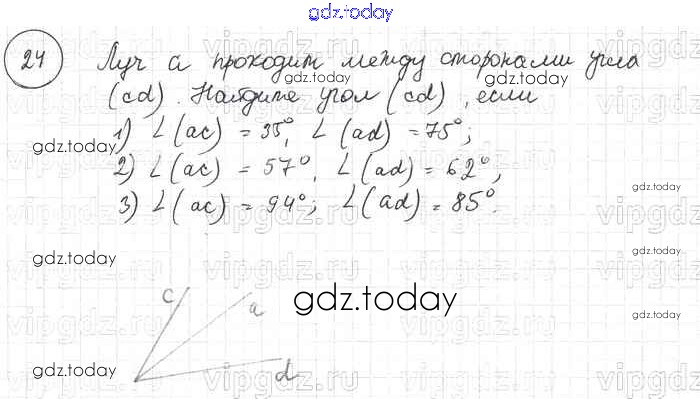 gdz.today
24 Луч a проходит между сторонами угла
(cd). Найдите угол (cd), если
1) ∠(ac) = 35°, ∠(ad) = 75°;
2) ∠(ac) = 57°, ∠(ad) = 62°,
3) ∠(ac) = 94°; ∠(ad) = 85°.
c
a
d
gdz.today
gdz.today
gdz.today
gdz.today
gdz.today
gdz.today
gdz.today
gdz.today
gdz.today